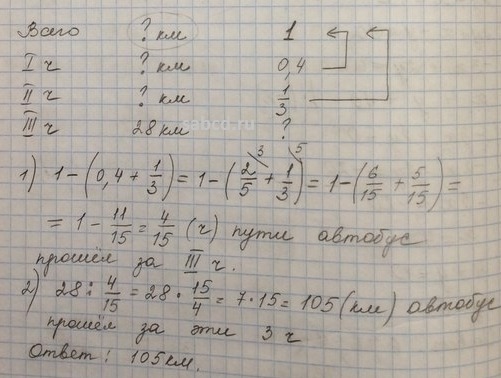 Всего ? км 1
I ч ? км 0,4
II ч ? км 1/3
III ч 28 км ?
sabcd.ru
1) 1-(0,4+1/3)=1-(2/5+1/3)=1-(6/15+5/15)=
=1-11/15=4/15 (ч) пути автобус
прошёл за III ч.
2) 28:4/15=28·15/4=7·15=105(км) автобус
прошёл за эти 3 ч
Ответ: 105км.